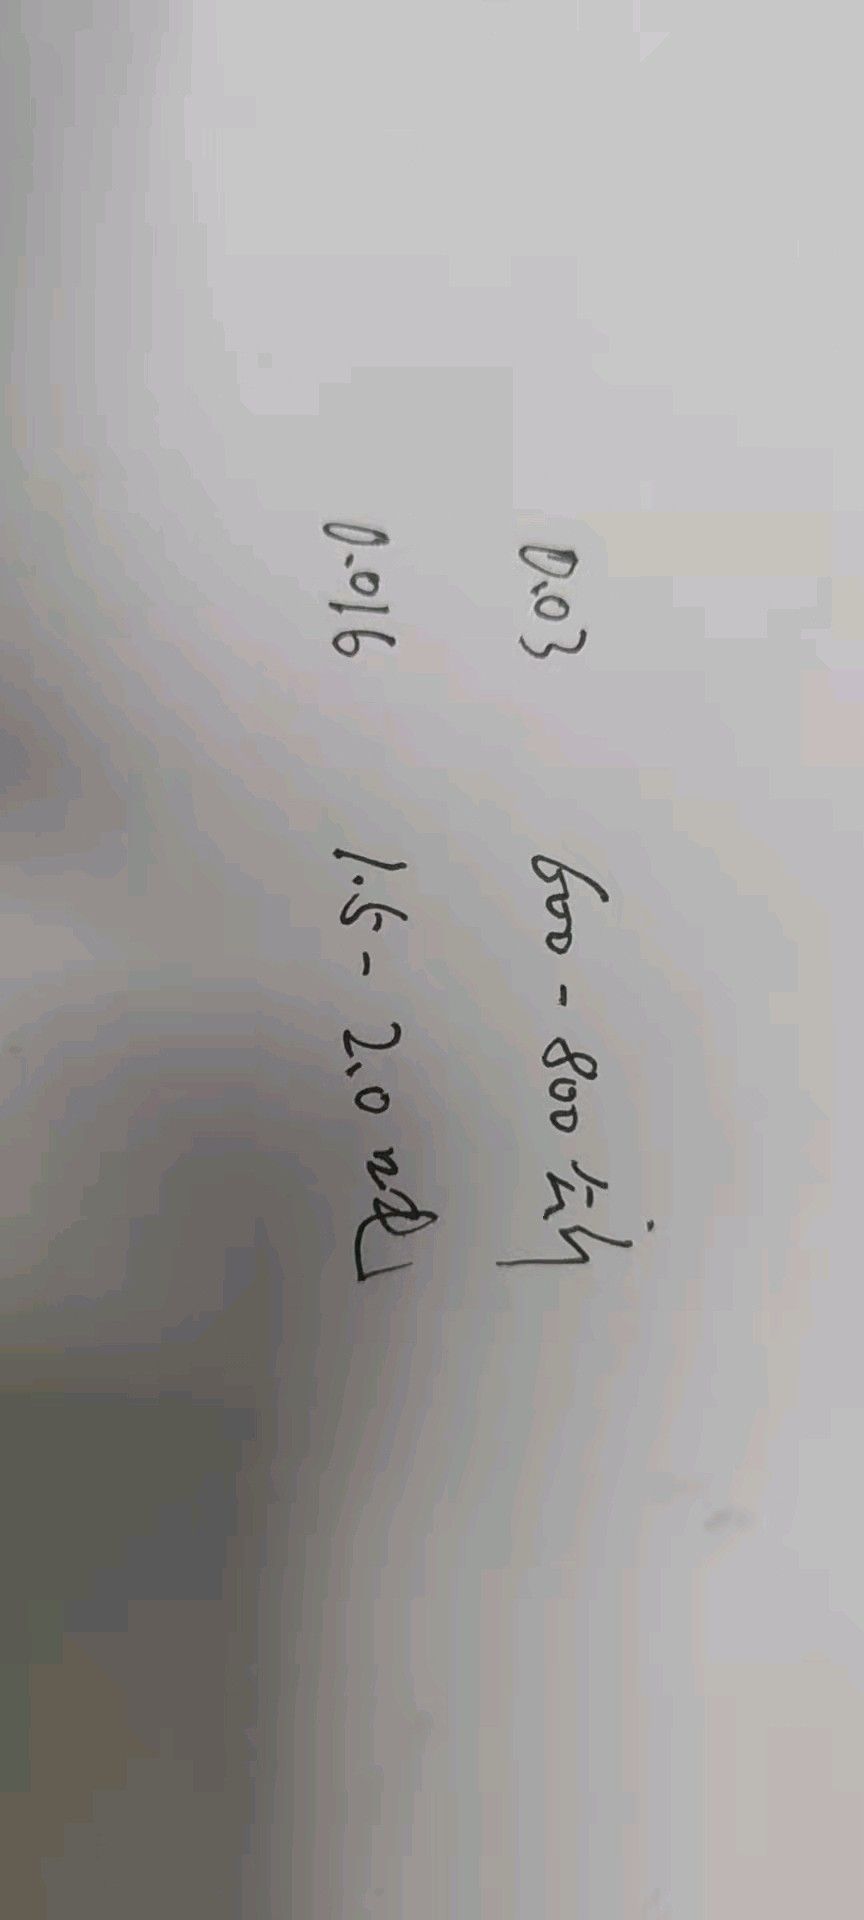 0.03 600-800
0.016 1.5-2.0